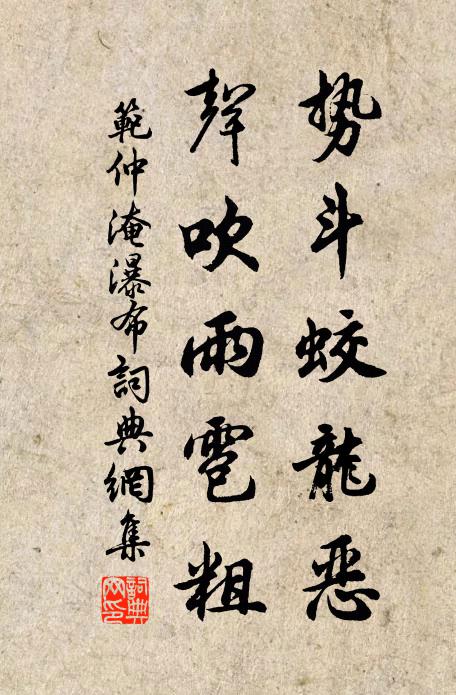 势斗蛟龍恶
聲吹雨雹粗
範仲淹瀑布詞典網集
詞典網印